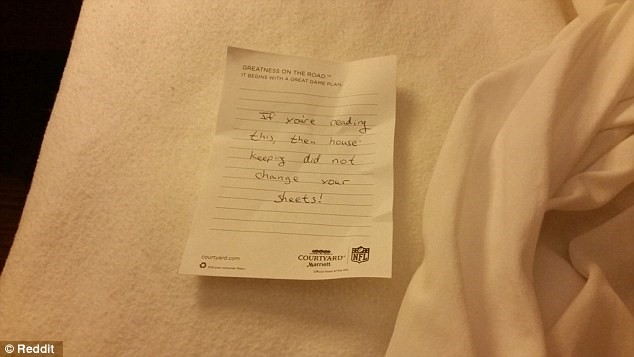 GREATNESS ON THE ROAD™
IT BEGINS WITH A GREAT GAME PLAN.
If you're reading
this, then house
keeping did not
change your
sheets!
courtyard.com
COURTYARD®
Marriott
NFL
© Reddit